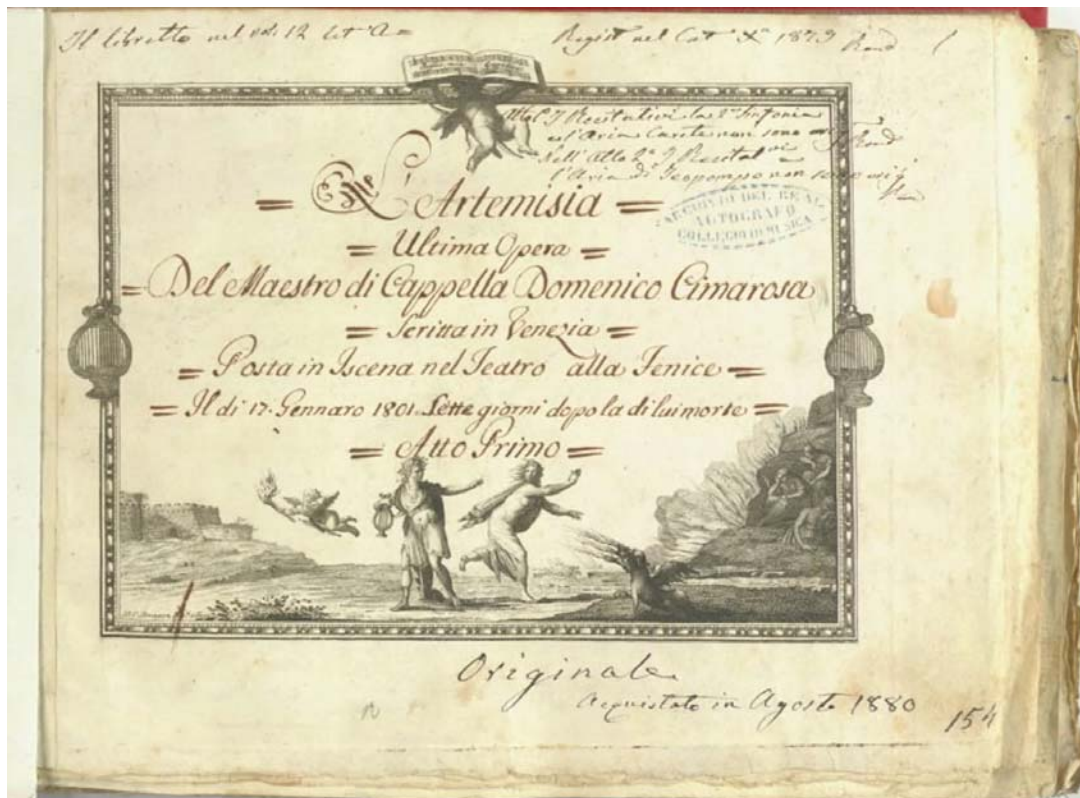 Il libretto nel vol. 12 let A=
Regist nel Cat 1879
Atto I Recitativi la 2ª Sinfonia
e l'Aria Carite non sono orig
Nell'Atto 2º I Recitat vi e
l'Aria di Teopompo non sono orig
= L'Artemisia =
ARCHIVIO DEL REAL
AUTOGRAFO
COLLEGIO DI MUSICA
= Ultima Opera =
= Del Maestro di Cappella Domenico Cimarosa
= Scritta in Venezia =
= Posta in Iscena nel Teatro alla Fenice =
= Il di 17. Gennaro 1801. Sette giorni dopo la di lui morte =
= Atto Primo =
Originale
Acquistato in Agosto 1880
154